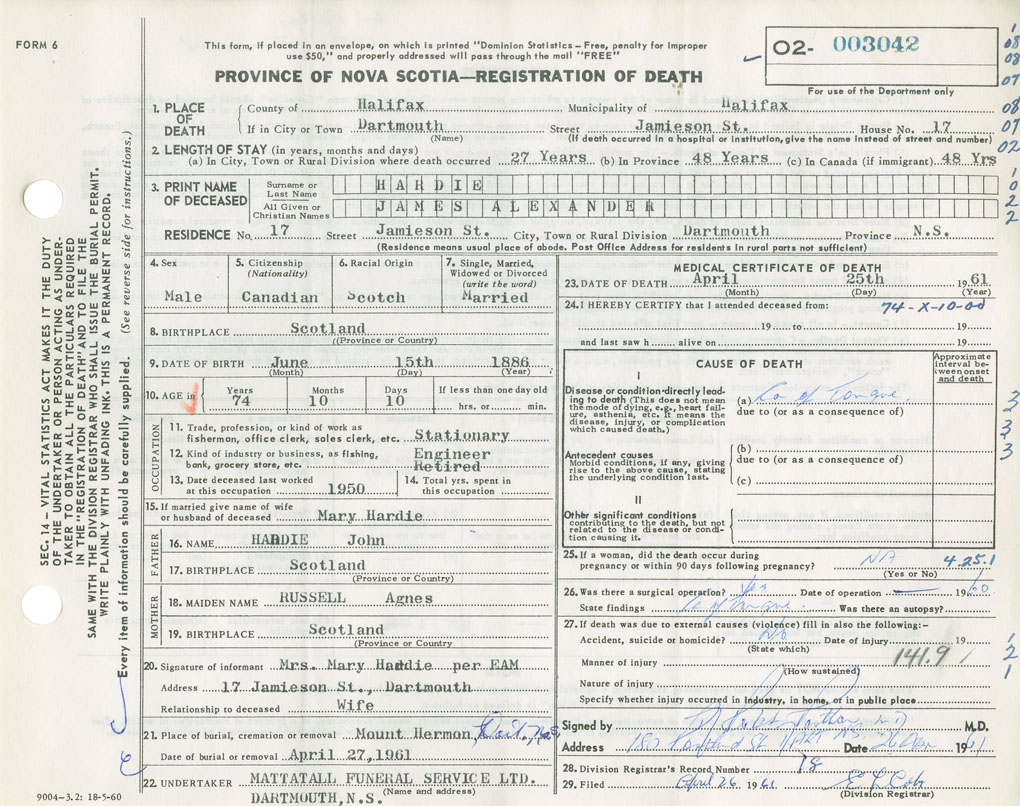 FORM 6
This form, if placed in an envelope, on which is printed "Dominion Statistics – Free, penalty for improper
use $50," and properly addressed will pass through the mail "FREE"
PROVINCE OF NOVA SCOTIA—REGISTRATION OF DEATH
02- 003042
For use of the Department only
1. PLACE OF DEATH County of Halifax Municipality of Halifax
If in City or Town Dartmouth (Name) Street Jamieson St. House No. 17
(If death occurred in a hospital or institution, give the name instead of street and number)
2. LENGTH OF STAY (in years, months and days)
(a) In City, Town or Rural Division where death occurred 27 Years (b) In Province 48 Years (c) In Canada (if immigrant) 48 Yrs
3. PRINT NAME OF DECEASED Surname or Last Name HARDIE
All Given or Christian Names JAMES ALEXANDER
RESIDENCE No. 17 Street Jamieson St. City, Town or Rural Division Dartmouth Province N.S.
(Residence means usual place of abode. Post Office Address for residents in rural parts not sufficient)
4. Sex Male
5. Citizenship (Nationality) Canadian
6. Racial Origin Scotch
7. Single, Married, Widowed or Divorced (write the word) Married
8. BIRTHPLACE Scotland
(Province or Country)
9. DATE OF BIRTH June 15th 1886
(Month) (Day) (Year)
10. AGE in Years 74 Months 10 Days 10 If less than one day old hrs. or min.
OCCUPATION
11. Trade, profession, or kind of work as fisherman, office clerk, sales clerk, etc. Stationary
12. Kind of industry or business, as fishing, bank, grocery store, etc. Engineer Retired
13. Date deceased last worked at this occupation 1950
14. Total yrs. spent in this occupation
15. If married give name of wife or husband of deceased Mary Hardie
FATHER
16. NAME HARDIE John
17. BIRTHPLACE Scotland
(Province or Country)
MOTHER
18. MAIDEN NAME RUSSELL Agnes
19. BIRTHPLACE Scotland
(Province or Country
20. Signature of informant Mrs. Mary Hardie per EAM
Address 17 Jamieson St., Dartmouth
Relationship to deceased Wife
21. Place of burial, cremation or removal Mount Hermon,
Date of burial or removal April 27, 1961
22. UNDERTAKER MATTATALL FUNERAL SERVICE LTD.
(Name and address)
DARTMOUTH, N.S.
9004-3.2: 18-5-60
MEDICAL CERTIFICATE OF DEATH
23. DATE OF DEATH April 25th 1961
(Month) (Day) (Year)
24. I HEREBY CERTIFY that I attended deceased from: 74-X-10-00
19 to 19
and last saw h alive on 19
CAUSE OF DEATH
Approximate interval between onset and death
I
Disease or condition directly leading to death (This does not mean the mode of dying, e.g., heart failure, asthenia, etc. It means the disease, injury, or complication which caused death.)
(a) Ca of Tongue
due to (or as a consequence of)
(b)
Antecedent causes
Morbid conditions, if any, giving rise to the above cause, stating the underlying condition last.
due to (or as a consequence of)
(c)
II
Other significant conditions contributing to the death, but not related to the disease or condition causing it.
25. If a woman, did the death occur during pregnancy or within 90 days following pregnancy? NA 4.25.1
(Yes or No)
26. Was there a surgical operation? Yes Date of operation 1960
State findings Ca of Tongue Was there an autopsy?
27. If death was due to external causes (violence) fill in also the following:–
Accident, suicide or homicide? No Date of injury 19
(State which)
Manner of injury 141.9
(How sustained)
Nature of injury
Specify whether injury occurred in industry, in home, or in public place
Signed by M.D.
Address Portland St Date 26 Apr 1961
28. Division Registrar's Record Number 18
29. Filed April 26 1961
(Division Registrar)
SEC. 14 – VITAL STATISTICS ACT MAKES IT THE DUTY
OF THE UNDERTAKER OR PERSON ACTING AS UNDER-
TAKER TO OBTAIN ALL THE PARTICULARS REQUIRED
IN THE "REGISTRATION OF DEATH" AND TO FILE THE
SAME WITH THE DIVISION REGISTRAR WHO SHALL ISSUE THE BURIAL PERMIT.
WRITE PLAINLY WITH UNFADING INK. THIS IS A PERMANENT RECORD.
Every item of information should be carefully supplied. (See reverse side for instructions.)